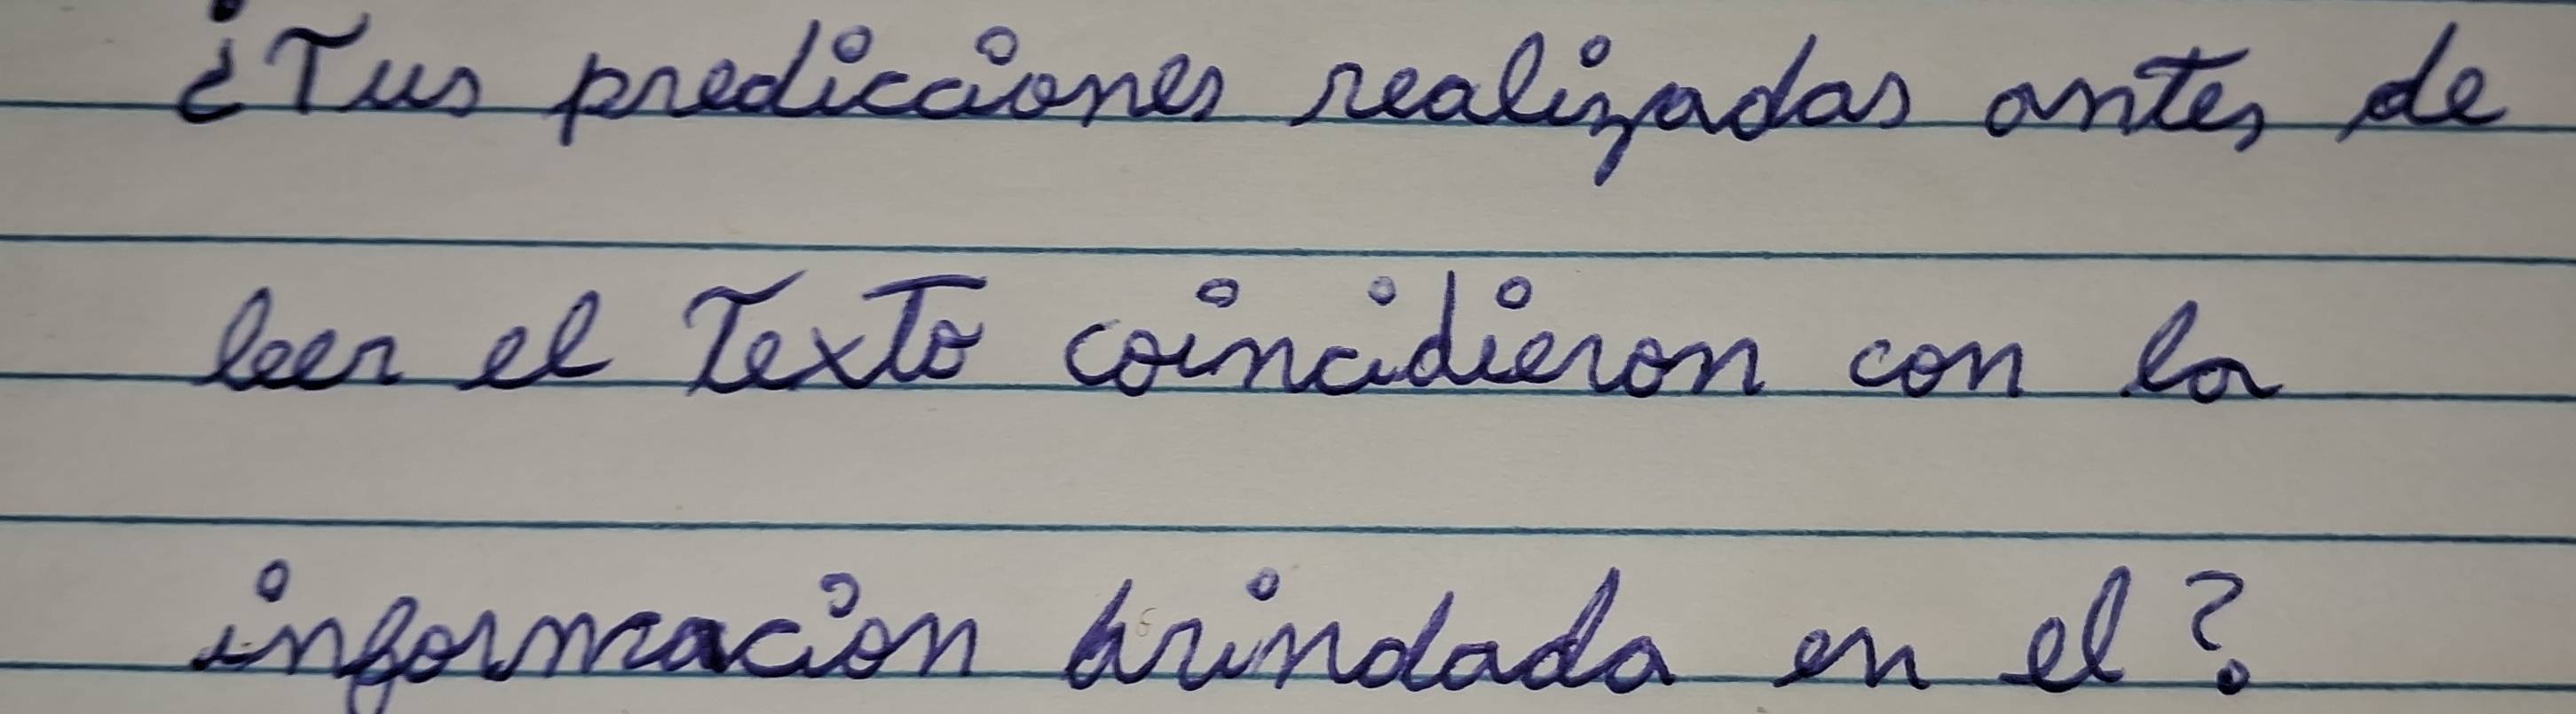 ¿Tus predicciones realizadas antes de
leer el Texto coincidieron con la
informacion brindada en el?